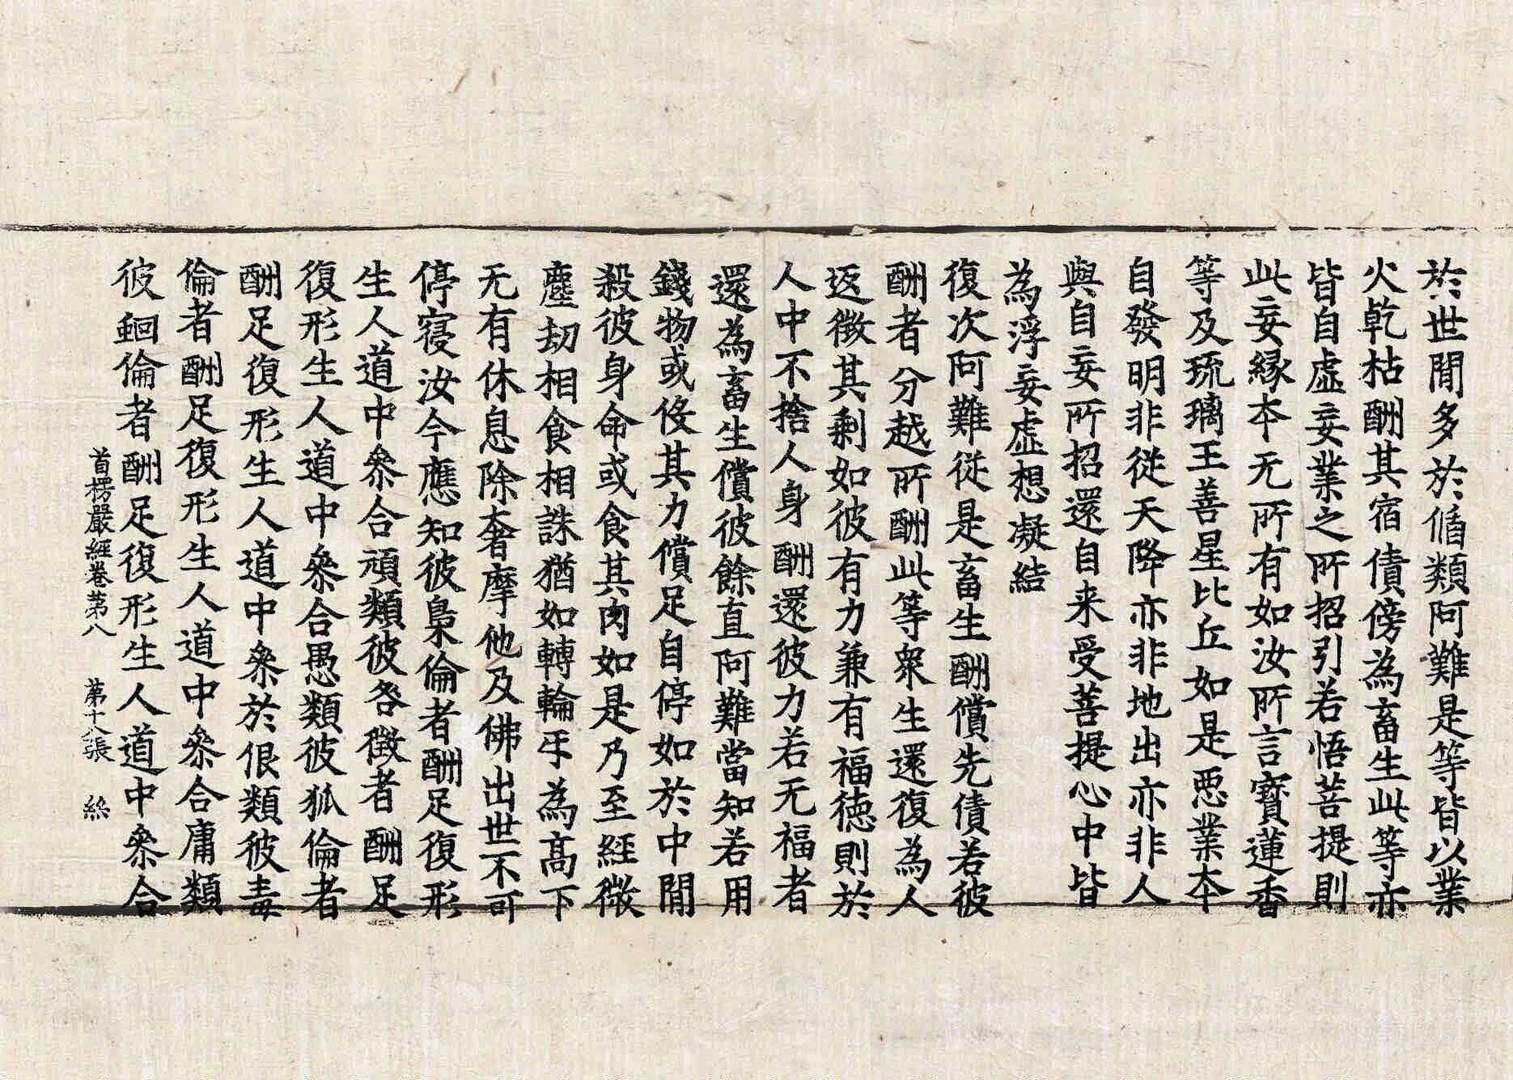 於世間多於循類阿難是等皆以業
火乾枯酬其宿債傍為畜生此等亦
皆自虛妄業之所招引若悟菩提則
此妄緣本无所有如汝所言寶蓮香
等及琉璃王善星比丘如是惡業本
自發明非從天降亦非地出亦非人
與自妄所招還自来受菩提心中皆
為浮妄虛想凝結
復次阿難從是畜生酬償先債若彼
酬者分越所酬此等衆生還復為人
返徵其剩如彼有力兼有福德則於
人中不捨人身酬還彼力若无福者
還為畜生償彼餘直阿難當知若用
錢物或伇其力償足自停如於中間
殺彼身命或食其肉如是乃至經微
塵劫相食相誅猶如轉輪㸦為高下
无有休息除奢摩他及佛出世不可
停寑汝今應知彼梟倫者酬足復形
生人道中叅合頑類彼咎徵者酬足
復形生人道中叅合愚類彼狐倫者
酬足復形生人道中叅於佷類彼毒
倫者酬足復形生人道中叅合庸類
彼蛔倫者酬足復形生人道中叅合
首楞嚴經卷第八 第十八張 絲